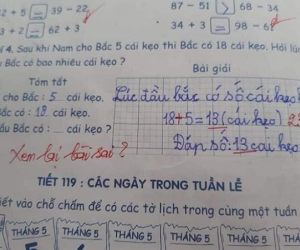 2 + 5 = 39 - 22 87 - 51 > 68 - 34
3 + 2 62 + 3 34 + 3 = 98 - 6
4. Sau khi Nam cho Bắc 5 cái kẹo thì Bắc có 18 cái kẹo. Hỏi lúc
u Bắc có bao nhiêu cái kẹo ?
Tóm tắt Bài giải
cho Bắc : 5 cái kẹo. Lúc đầu bắc có số cái kẹo
Bắc có : 18 cái kẹo. 18+5=13 (cái kẹo)
ầu Bắc có : .... cái kẹo? Đáp số: 13 cái kẹo
Xem lại bài sai ?
TIẾT 119 : CÁC NGÀY TRONG TUẦN LỄ
iết vào chỗ chấm để có các tờ lịch trong cùng một tuần
THÁNG 5 THÁNG 5 THÁNG 5 THÁNG 5 THÁNG 5